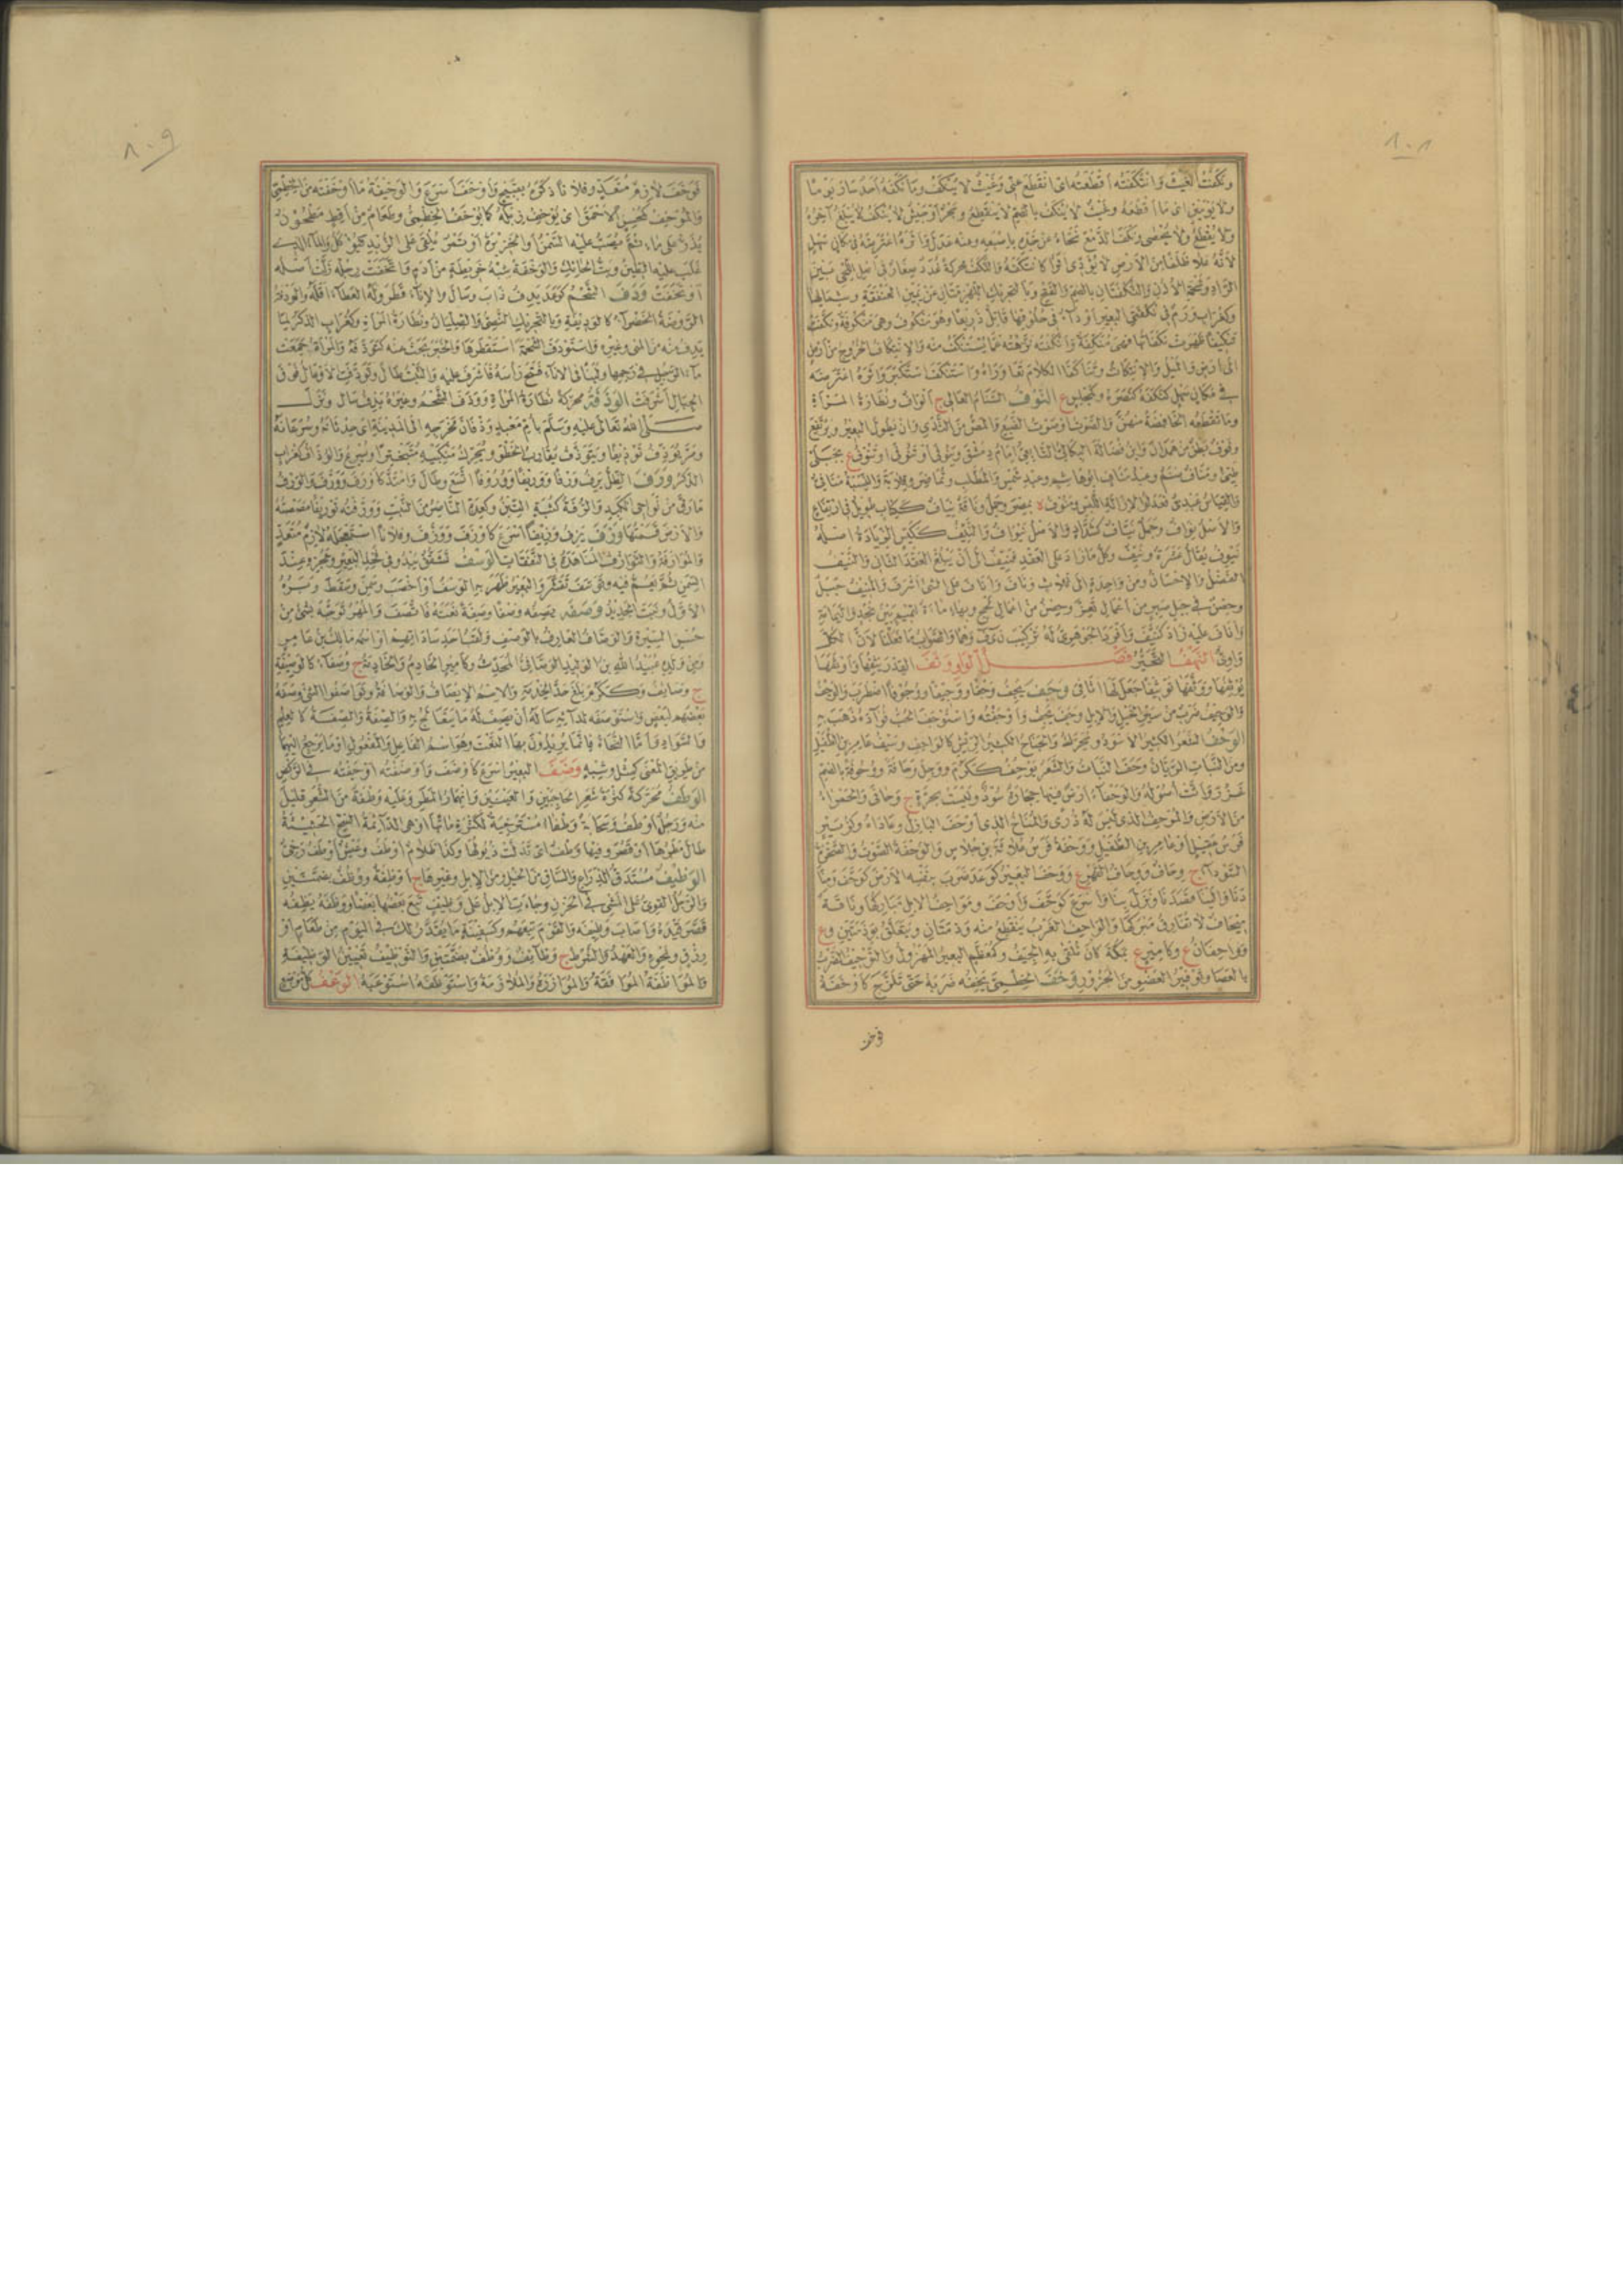 ونكفت الغيث وانتكفته اقطعته اى انقطع عنى وغيث لا ينكف وما نكفه احد سار يوما
ولا يومين اى ما اقطعه وغيث لا ينكف بالضم لا ينقطع
ولا يقطع ولا يحصى ونكف الدمع نحاه عن خده باصبعه وعنه عدل واثره اعترضه فى مكان سهل
لانه علا ظلفا من الارض لا يؤدى اثرا كانتكفه والنكف محركة غدد صغار فى اصل اللحى بين
الراد وشحمة الاذن والنكفتان بالضم والفتح وبالتحريك اللهزمتان عن يمين العنفقة وشمالها
وكغراب ورم فى نكفتى البعير او داء فى حلوقها قاتل ذريعا وهو منكوف وهى منكوفة ونكفت
تنكيفا ظهرت نكفاتها فهى منكفة وانكفته نزهته عما يستنكف منه والانتكاف الخروج من ارض
الى ارض والميل والانتكاث وتناكفا الكلام تعاوراه واستنكف استكبر واثره اعترضه
فى مكان سهل كنكفه كنصره وكمجلس ع النوف السنام العالى ج انواف وبظارة المراة
وما تقطعه الخافضة منهن والصوت او صوت الضبع والمص من الثدى وان يطول البعير ويرتفع
ونوف بطن من همدان وابن فضالة البكالى التابعى امام دمشق
طيئ ومناف صنم وعبد مناف ابو هاشم وعبد شمس والمطلب وتماضر وقلابة والنسبة منافى
والقياس عبدى فعدلوا لازالة اللبس ومنوف ه بمصر وجمل وناقة نياف ككتاب طويل فى ارتفاع
والاصل نواف وجمل نياف كشداد والاصل نيواف والنيف ككيس الزيادة اصله
نيوف يقال عشرة ونيف وكل ما زاد على العقد فنيف الى ان يبلغ العقد الثانى والنيف
الفضل والاحسان ومن واحدة الى ثلاث وناف واناف على الشئ اشرف والمنيف جبل
وحصن فى جبل صبر من اعمال تعز وحصن من اعمال لحج وبهاء ماءة لتميم بين نجد واليمامة
واناف عليه زاد كنيف وافرد الجوهرى له تركيب ن ى ف وهما والصواب ما فعلنا لان الكل
واوى النهف التحير فصل الواو وثف القدر يثفها واوثفها
يوثفها ووثفها توثيفا جعل لها اثافى وجف يجف وجفا ووجيفا ووجوفا اضطرب والوجف
والوجيف ضرب من سير الخيل والابل وجف يجف واوجفته واستوجف الحب فؤاده ذهب به
الوحف الشعر الكثير الاسود ويحرك والجناح الكثير الريش كالواحف وسيف عامر بن الطفيل
ومن النبات الريان وحف النبات والشعر يوحف ككرم ووجل وحافة ووحوفة بالضم
غزر واثت اصوله والوحفاء ارض فيها حجارة سود وليست بحرة ج وحافى والحمراء
من الارض والموحف الذى ليس له ذرى والمناخ الذى اوحف البازل وعاداه وكزبير
فرس عقيل او عامر بن الطفيل ووحفة فرس علاثة بن جلاس والوحفة الصوت والصخرة
السوداء ج وحاف ووحاف القهر ع ووحف البعير كوعد ضرب بنفسه الارض كوحف ومنا
دنا والينا قصدنا ونزل بنا واسرع كوحف واوحف ومواحف الابل مباركها وناقة
ميحاف لا تفارق مبركها والواحف الغرب ينقطع منه وذمتان ويتعلق بوذمتين وع
وواحفان ع وكامير ع بمكة كان تلقى به الجيف وكمعظم البعير المهزول والتوحيف الضرب
بالعصا وتوفير العضو من الجزور وخف الخطمى يخفه ضربه حتى تلزج كاوخفه
فوخف
فوخف لازم متعد وفلانا ذكره بقبيح واوخف اسرع والوخيفة ما اوخفته من الخطمى
والموخف كمحسن الاحمق اى يوخف زبله كما يوخف الخطمى وطعام من اقط مطحون
يذر على ماء ثم يصب عليه السمن والخزيرة او تمر يلقى على الزبد فيؤكل والماء الذى
غلب عليه الطين وبت الحائك والوخفة شبه خريطة من ادم واتخفت رجله زلت اصله
اوتخفت ودف الشحم كوعد يدف ذاب وسال والاناء قطر وله العطاء اقله والودفة
الروضة الخضراء كالوديفة وبالتحريك النصى والصليان وبظارة المراة وكغراب الذكر لما
يدف منه من المنى وغيره واستودف الشحمة استقطرها والخبر بحث عنه كتودفه والمراة جمعت
ماء الرجل فى رحمها ولبنا فى الاناء فتح راسه فاشرف عليه والنبت طال وتودفت الاوعال فوق
الجبال اشرفت الوذفة محركة بظارة المراة ووذف الشحم وغيره يذف سال ونزل
صلى الله تعالى عليه وسلم بام معبد وذفان مخرجه الى المدينة اى حدثانه وسرعانه
ومر يوذف توذيفا ويتوذف يقارب الخطو ويحرك منكبيه متبخترا او يسرع والوذاف كغراب
الذكر ورف الظل يرف ورفا ووريفا ووروفا اتسع وطال وامتد كاورف وورف والورف
ما رق من نواحى الكبد والرفة كثبة التبن وكعدة الناضر من النبت وورفته توريفا مصصته
والارض قسمتها وزف يزف وزيفا اسرع كاوزف ووزف وفلانا استعجله لازم متعد
والموازفة والتوازف المناهدة فى النفقات الوسف تشقق يبدو فى فخذ البعير وعجزه عند
السمن ثم يعم فيه وتوسف تقشر والبعير ظهر به الوسف او اخصب وسمن وسقط وبره
الاول ونبت الجديد وصفه يصفه وصفا وصفة نعته فاتصف والمهر توجه لشئ من
حسن السيرة والوصاف العارف بالوصف ولقب احد ساداتهم او اسمه مالك بن عامر
ومن ولده عبيد الله بن الوليد الوصافى المحدث وكامير الخادم والخادمة ج وصفاء كالوصيفة
ج وصائف وككرم بلغ حد الخدمة والاسم الايصاف والوصافة وتواصفوا الشئ وصفه
بعضهم لبعض واستوصفه لدائه ساله ان يصف له ما يتعالج به والصفة كالعلم
والسواد واما النحاة فانما يريدون بها النعت وهو اسم الفاعل والمفعول او ما يرجع اليهما
من طريق المعنى كمثل وشبه وضف البعير اسرع كاوضف واوضفته اوجفته فى الركض
الوطف محركة كثرة شعر الحاجبين والعينين وانهمار المطر وعليه وطفة من الشعر قليل
منه ورجل اوطف وسحابة وطفاء مسترخية لكثرة مائها او هى الدائمة السح الحثيثة
طال مطرها او قصر وفيها وطف اى تدلت ذيولها وكذا ظلام اوطف وعيش اوطف رخى
الوظيف مستدق الذراع والساق من الخيل ومن الابل وغيرها ج اوظفة ووظف بضمتين
والرجل القوى على المشى فى الحزن وجاءت الابل على وظيف تبع بعضها بعضا ووظفه يظفه
قصر قيده واصاب وظيفه والقوم تبعهم وكسفينة ما يقدر لك فى اليوم من طعام او
رزق ونحوه والعهد والشرط ج وظائف ووظف بضمتين والتوظيف تعيين الوظيفة
والمواظفة الموافقة والموازرة والملازمة واستوظفه استوعبه الوعف كل موضع